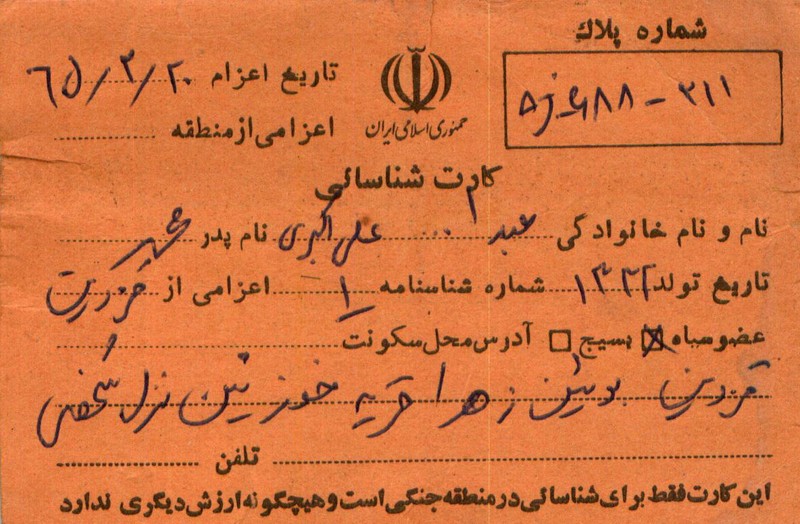 شماره پلاك
۳۱۱ - ۸۸
تاریخ اعزام ۶۵/۳/۲۰
جمهوری اسلامی ایران
اعزامی از منطقه
کارت شناسائی
نام و نام خانوادگی عبدا... علی اکبری نام پدر
تاریخ تولد ۱۳۴۲ شماره شناسنامه ۱ اعزامی از قزوین
عضو سپاه بسیج آدرس محل سکونت
قزوین بوئین زهرا قریه خوزنین منزل شخصی
تلفن
این کارت فقط برای شناسائی در منطقه جنگی است و هیچگونه ارزش دیگری ندارد